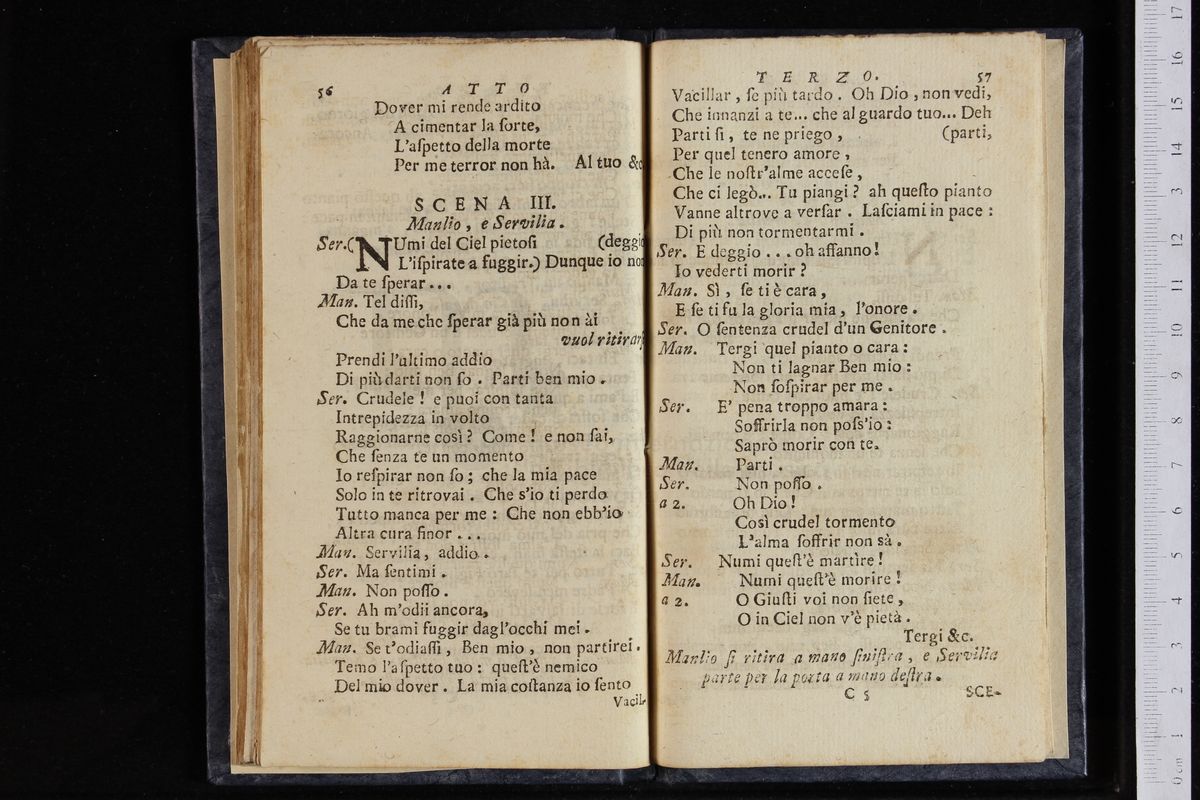 56 ATTO
Dover mi rende ardito
A cimentar la ſorte,
L'aſpetto della morte
Per me terror non hà. Al tuo &c
SCENA III.
Manlio, e Servilia.
Ser. (NUmi del Ciel pietoſi (deggio
L'iſpirate a fuggir.) Dunque io non
Da te ſperar...
Man. Tel diſſi,
Che da me che ſperar già più non ài
vuol ritirarſ
Prendi l'ultimo addio
Di più darti non ſo. Parti ben mio.
Ser. Crudele! e puoi con tanta
Intrepidezza in volto
Raggionarne così? Come! e non ſai,
Che ſenza te un momento
Io reſpirar non ſo; che la mia pace
Solo in te ritrovai. Che s'io ti perdo
Tutto manca per me: Che non ebb'io
Altra cura finor...
Man. Servilia, addio.
Ser. Ma ſentimi.
Man. Non poſſo.
Ser. Ah m'odii ancora,
Se tu brami fuggir dagl'occhi mei.
Man. Se t'odiaſſi, Ben mio, non partirei.
Temo l'aſpetto tuo: queſt'è nemico
Del mio dover. La mia coſtanza io ſento
Vacil-
TERZO. 57
Vacillar, ſe più tardo. Oh Dio, non vedi,
Che innanzi a te... che al guardo tuo... Deh
Parti ſi, te ne priego, (parti,
Per quel tenero amore,
Che le noſtr'alme acceſe,
Che ci legò... Tu piangi? ah queſto pianto
Vanne altrove a verſar. Laſciami in pace:
Di più non tormentarmi.
Ser. E deggio... oh affanno!
Io vederti morir?
Man. Sì, ſe ti è cara,
E ſe ti fu la gloria mia, l'onore.
Ser. O ſentenza crudel d'un Genitore.
Man. Tergi quel pianto o cara:
Non ti lagnar Ben mio:
Non ſoſpirar per me.
Ser. E' pena troppo amara:
Soffrirla non poſs'io:
Saprò morir con te.
Man. Parti.
Ser. Non poſſo.
a 2. Oh Dio!
Così crudel tormento
L'alma ſoffrir non sà.
Ser. Numi queſt'è martìre!
Man. Numi queſt'è morire!
a 2. O Giuſti voi non ſiete,
O in Ciel non v'è pietà.
Tergi &c.
Manlio ſi ritira a mano ſiniſtra, e Servilia
parte per la porta a mano deſtra.
C 5 SCE-